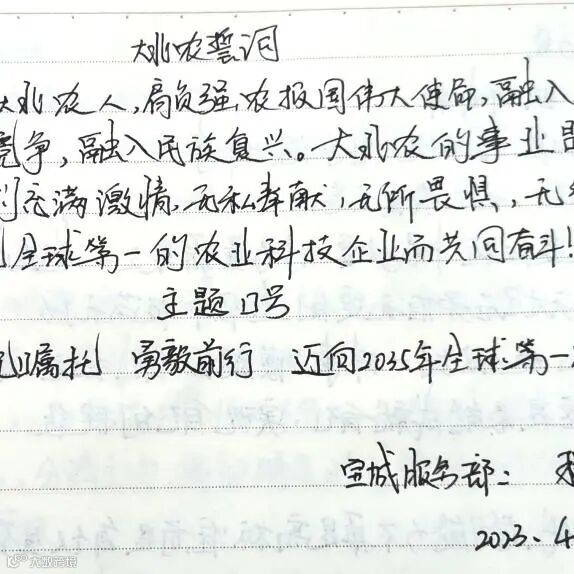 大北农誓词
大北农人,肩负强农报国伟大使命,融入
竞争,融入民族复兴。大北农的事业
们充满激情,无私奉献,无所畏惧,无
全球第一的农业科技企业而共同奋斗!
主题口号
嘱托 勇毅前行 迈向2035年全球第一
宝城服务部:
2023.4
大数跨境